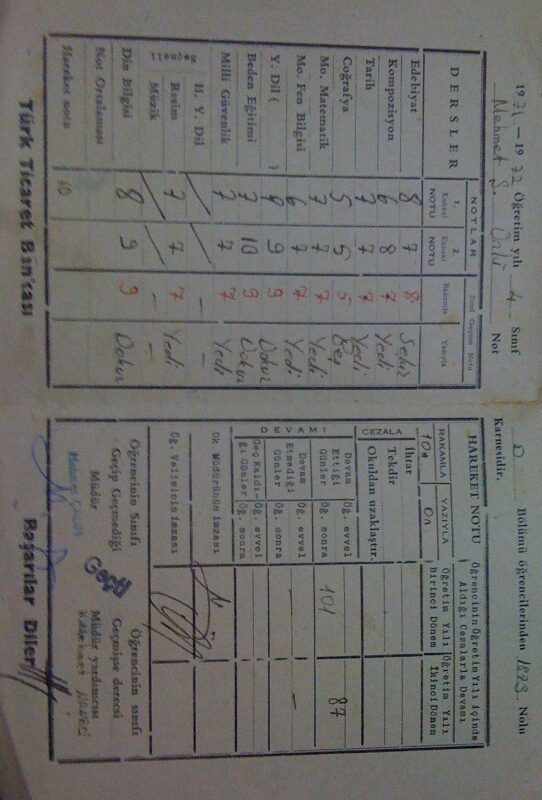 19 71 — 19 72 Öğretim yılı 4 Sınıf
D Bölümü öğrencilerinden 1893 Nolu
Mehmet Ş. Ünlü Not
Karnesidir.
DERSLER
NOTLAR
1. Kanaat NOTU
2. Kanaat NOTU
Sınıf Geçme Notu
Rakamla Yazıyla
Edebiyat 8 7 8 Sekiz
Kompozisyon 6 8 7 Yedi
Tarih 7 7 7 Yedi
Coğrafya 5 5 5 Beş
Mo. Matematik 7 7 7 Yedi
Mo. Fen Bilgisi 6 7 7 Yedi
Y. Dil ( ) 9 9 Dokuz
Beden Eğitimi 7 10 9 Dokuz
Milli Güvenlik 7 7 7 Yedi
Seçmeli
H. Y. Dil — —
Resim 7 7 7 Yedi
Müzik — —
Din Bilgisi 8 9 9 Dokuz
Not Ortalaması
Hareket notu 10
Türk Ticaret Bankası
HAREKET NOTU
RAKAMLA YAZIYLA
10 On
Öğrencinin Öğretim Yılı İçinde
Aldığı Cezalarla Devamı
Öğretim Yılı Birinci Dönem
Öğretim Yılı İkinci Dönem
CEZALA
İhtar
Tekdir
Okuldan uzaklaştır.
DEVAMI
Devam Ettiği Günler
Öğ. evvel 101 87
Öğ. sonra
Devam Etmediği Günler
Öğ. evvel — —
Öğ. sonra
Geç Kaldığı Günler
Öğ. evvel
Öğ. sonra
Ok. Müdürünün imzası
Öğ. Velisinin imzası
Öğrencinin Sınıfı
Geçip Geçmediği
Geçti
Müdür
Öğrencinin sınıfı
Geçmişse derecesi
Müdür yardımcısı
Başarılar Diler